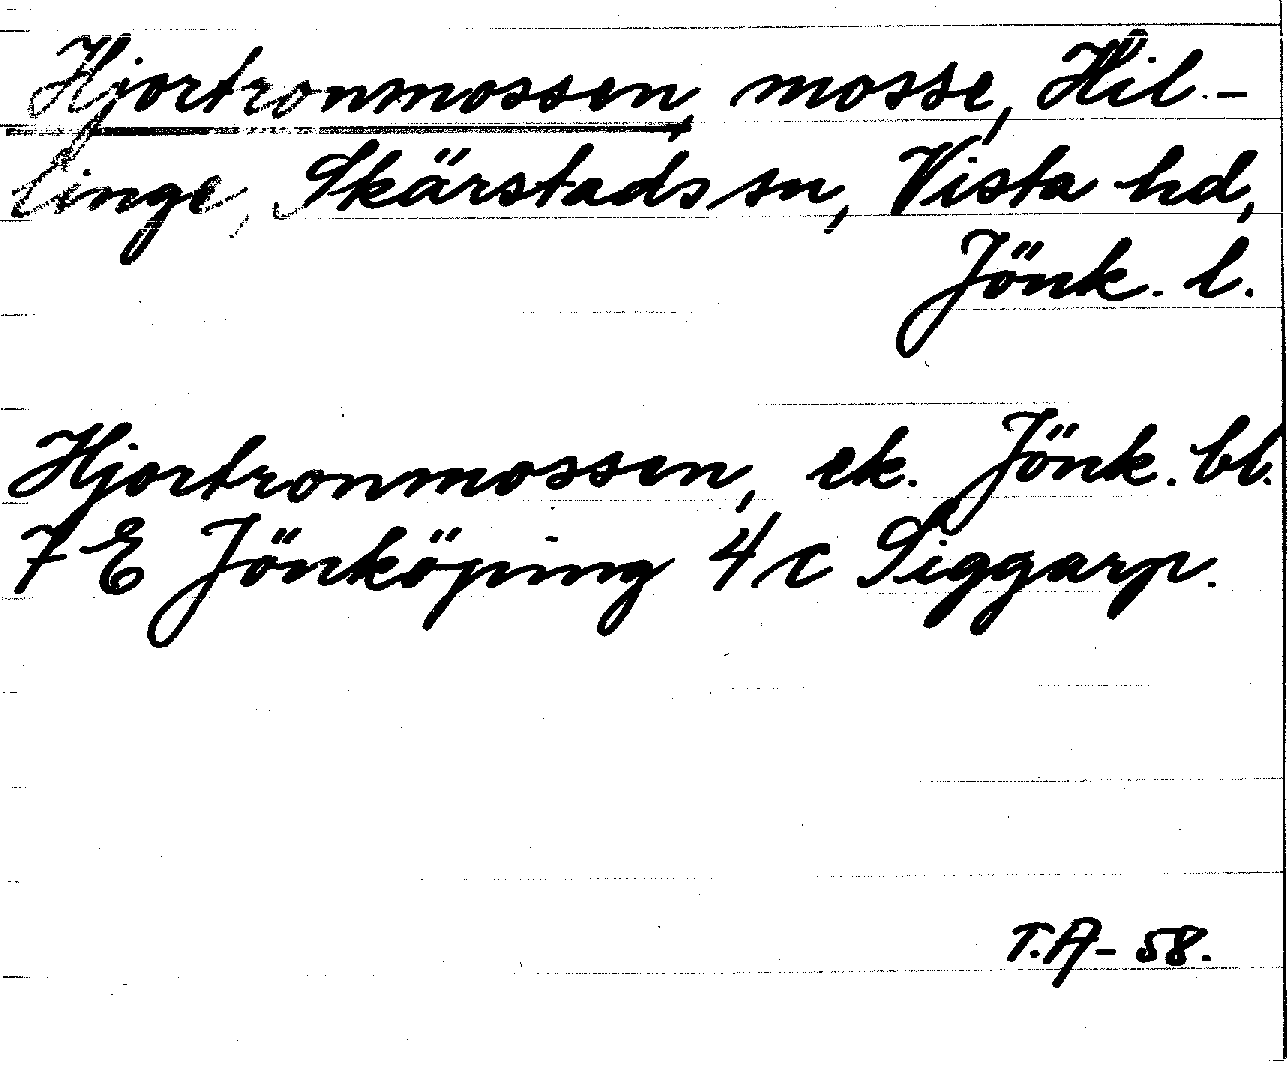 Hjortronmossen, mosse, Hil-
linge, Skärstads sn, Vista hd,
Jönk. l.
Hjortronmossen, ek. Jönk. bl.
7 E Jönköping 4 c Siggarp.
T.A- 58.